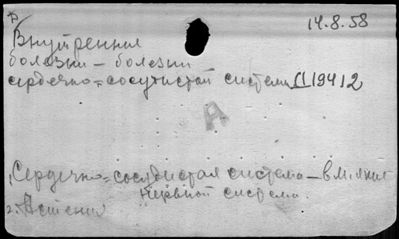 14.8.58
Внутренние
болезни – болезни
сердечно=сосудистой системы II 19412
А
1. Сердечно=сосудистая система – влияния
нервной системы.
2. Астения